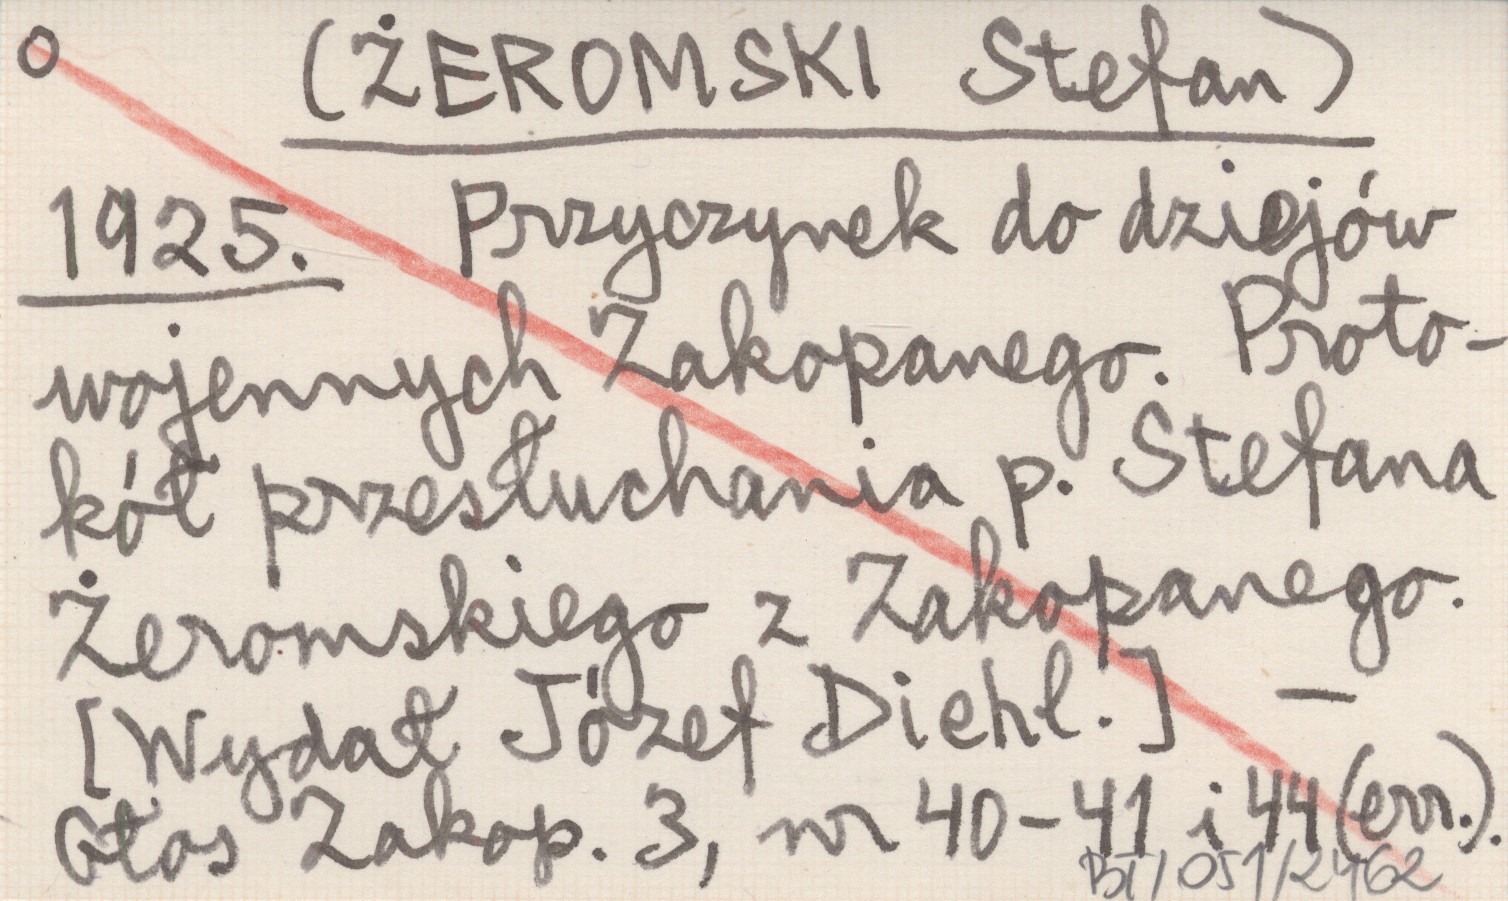 (ŻEROMSKI Stefan)
1925. Przyczynek do dziejów
wojennych Zakopanego. Proto-
kół przesłuchania p. Stefana
Żeromskiego z Zakopanego.
[Wydał Józef Diehl.] —
Głos Zakop. 3, nr 40-41 i 44 (err.).
BT/051/2462